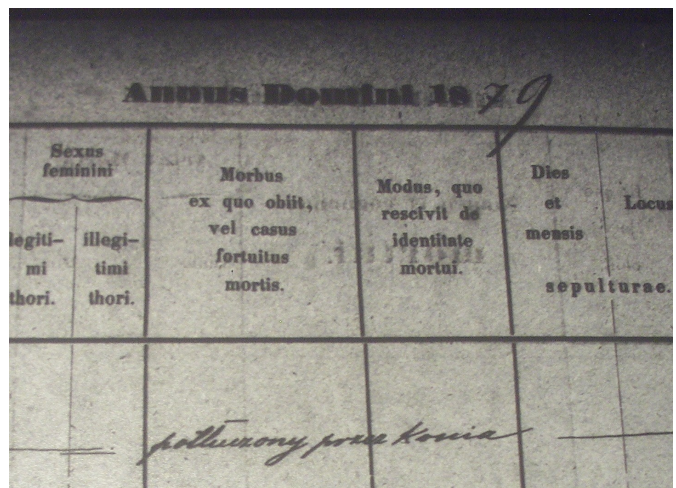 Annus Domini 1879
Sexus
feminini
legiti-
mi
thori.
illegi-
timi
thori.
Morbus
ex quo obiit,
vel casus
fortuitus
mortis.
Modus, quo
rescivit de
identitate
mortui.
Dies
et
mensis
Locus
sepulturae.
potłuczony przez Konia